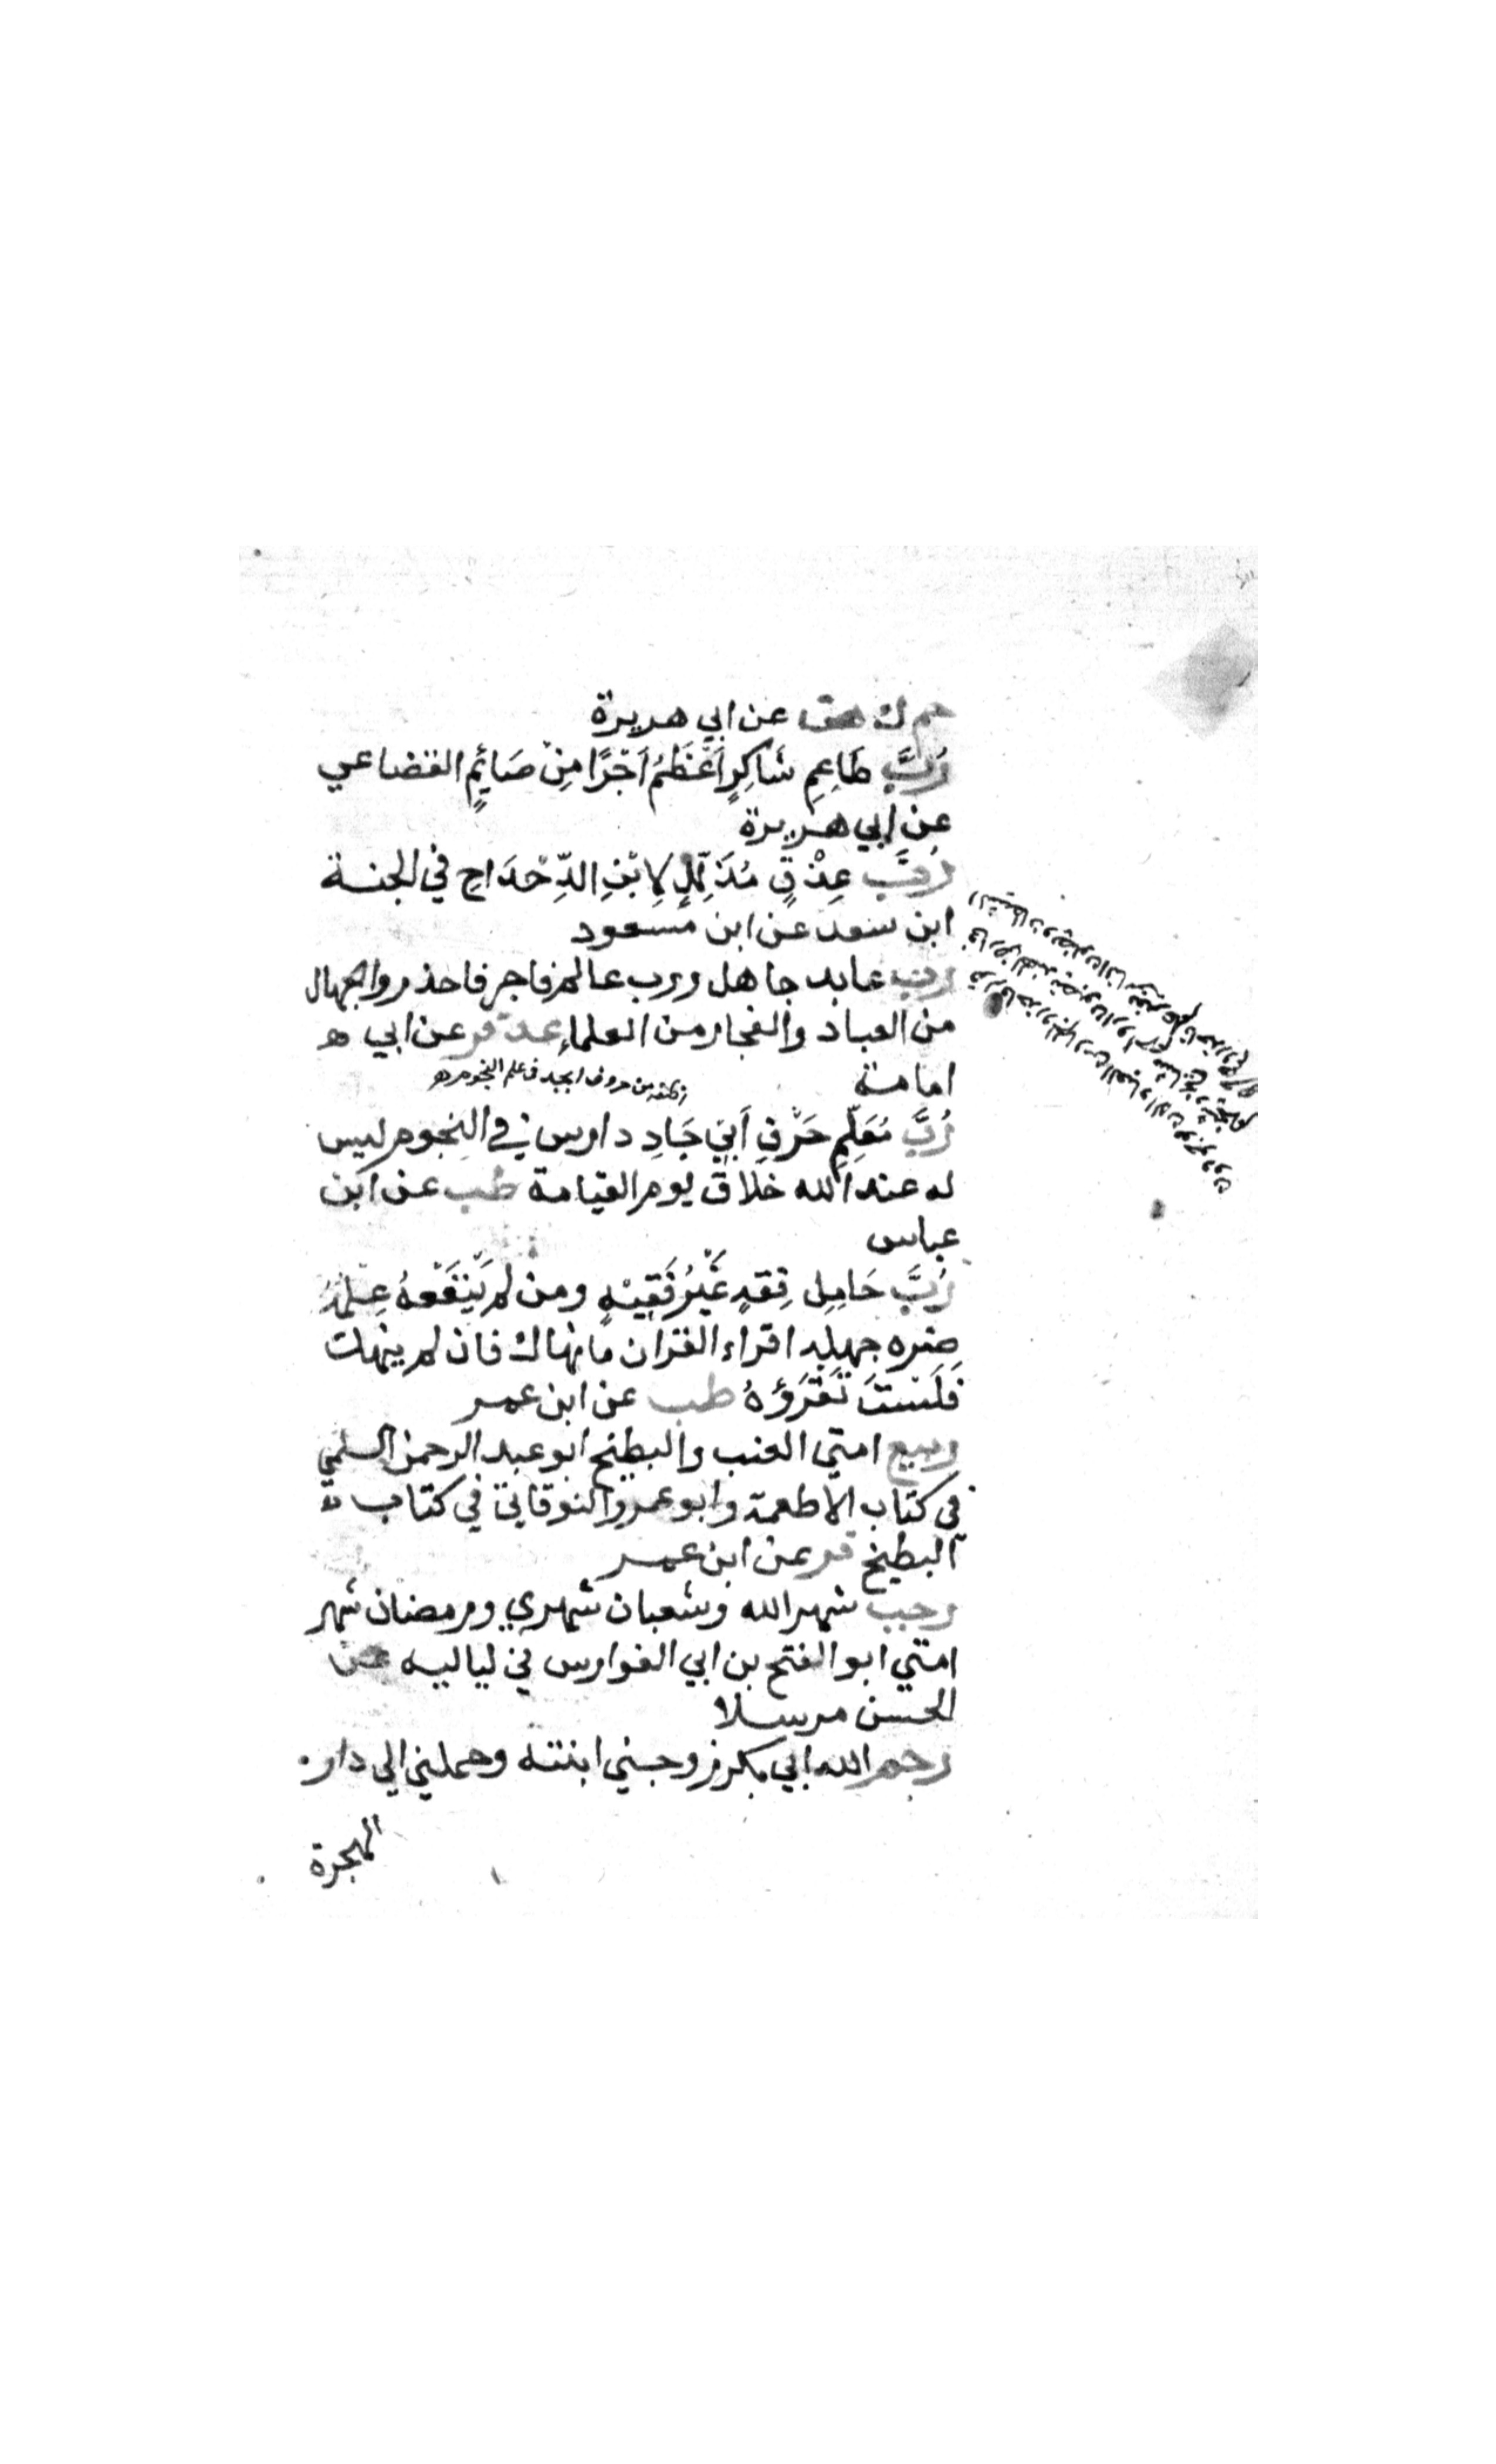 حم ك هق عن ابي هريرة
رُبَّ طَاعِمٍ شَاكِرٍ اَعْظَمُ اَجْرًا مِنْ صَائِمٍ القضاعي
عن ابي هريرة
رُبَّ عِذْقٍ مُذَلَّلٍ لِابْنِ الدِّحْدَاحِ في الجنة
ابن سعد عن ابن مسعود
رب عابد جاهل ورب عالم فاجر فاحذروا الجهال
من العباد والفجار من العلماء عد فر عن ابي
امامة
من حروف ابجد في علم النجوم
رُبَّ مُعَلِّمِ حَرْفِ اَبِي جَادٍ دارس في النجوم ليس
له عند الله خلاق يوم القيامة طب عن ابن
عباس
رُبَّ حَامِلِ فِقْهٍ غَيْرُ فَقِيْهٍ ومن لم يَنْفَعْهُ عِلْمُهُ
ضره جهله اقراء القران ما نهاك فان لم ينهك
فَلَسْتَ تَقْرَؤُهُ طب عن ابن عمر
ربيع امتي العنب والبطيخ ابو عبد الرحمن السلمي
في كتاب الاطعمة وابو عمرو النوقاني في كتاب
البطيخ فر عن ابن عمر
رجب شهر الله وشعبان شهري ورمضان شهر
امتي ابو الفتح بن ابي الفوارس في اماليه عن
الحسن مرسلا
رحم الله ابي بكر زوجني ابنته وحملني الي دار
الهجرة